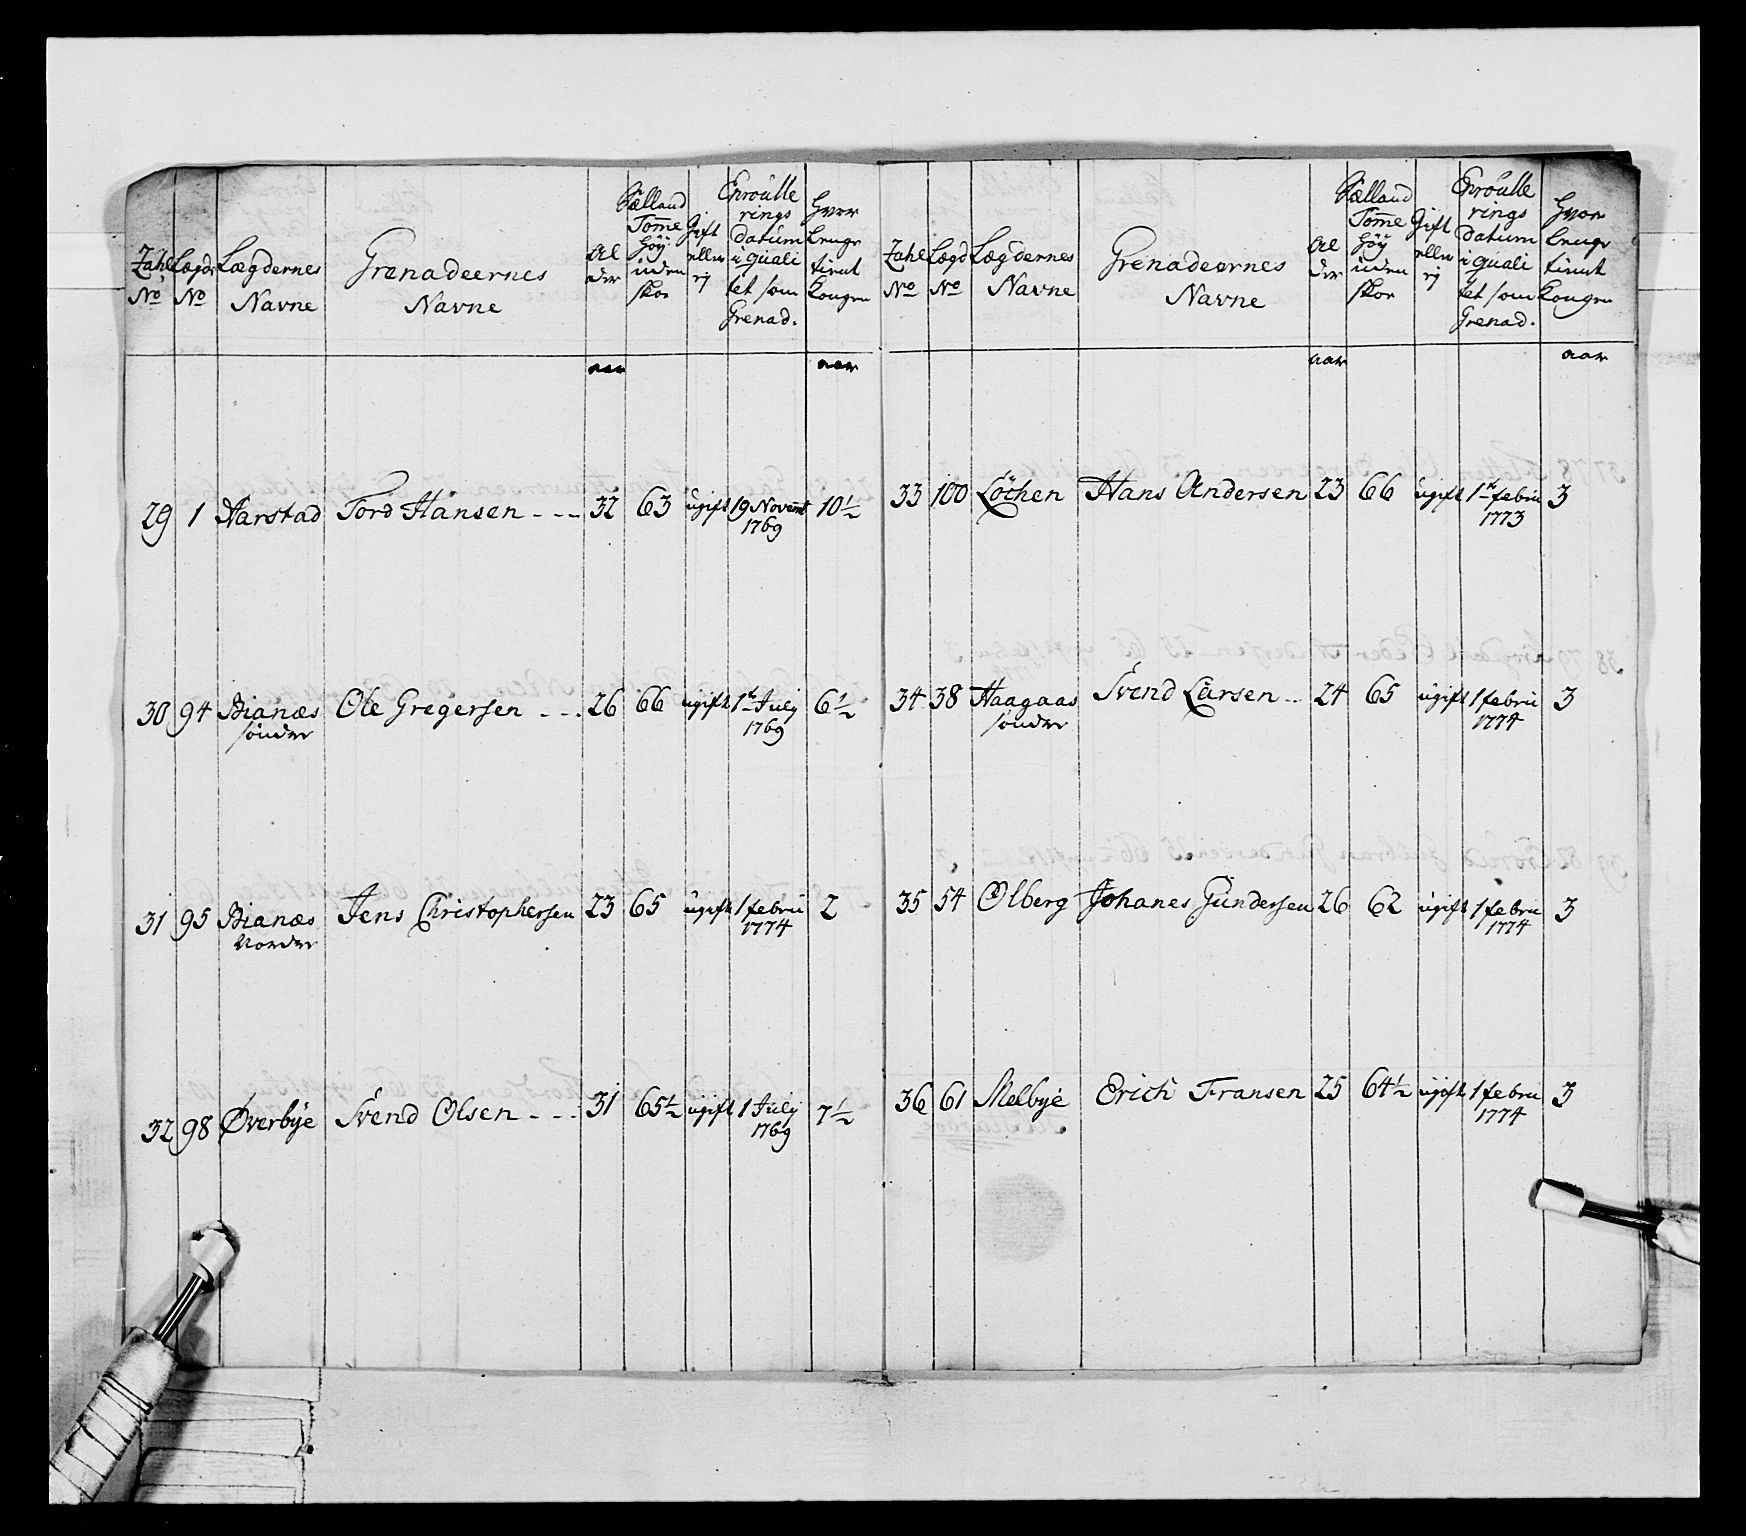 Zahl No
Lægds No
Lægdernes Navne
Grenadeernes Navne
Al der
Sælland Tomme höy uden skoe
Gift eller ej
Enroulle rings datum i quali tet som Grenad.
Hvor lenge tient Kongen
aar
aar
29 1 Aarstad Tord Hansen - - - 32 63 ugift 19 Novemt 1769 10½
30 94 Bianæs sönder Ole Gregersen - - - 26 66 ugift 1te July 1769 6½
31 95 Bianæs Norder Jens Christophersen 23 65 ugift 1 febru 1774 2
32 98 Øverbÿe Svend Olsen - - - 31 65½ ugift 1 July 1769 7½
Zahl No
Lægd No
Lægdernes Navne
Grenadeernes Navne
Al der
Sælland Tomme höy uden skoe
Gift eller ej
Enroulle rings datum i quali tet som Grenad.
Hvor lenge tient Kongen
aar
aar
33 100 Löchen Hans Andersen 23 66 ugift 1te febru 1773 3
34 38 Haagaas sönder Svend Larsen - - 24 65 ugift 1 febru 1774 3
35 54 Olberg Johanes Gundersen 26 62 ugift 1 febru 1774 3
36 61 Melbye Erich Fransen 25 64½ ugift 1 febru 1774 3